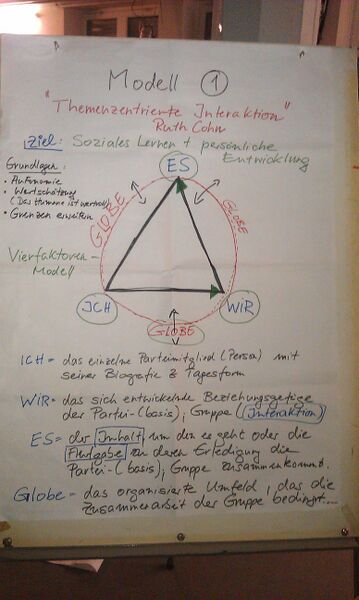 Modell 1
"Themenzentrierte Interaktion"
Ruth Cohn
Ziel: Soziales Lernen + persönliche
Entwicklung
Grundlagen:
• Autonomie
• Wertschätzung
(Das Humane ist wertvoll)
• Grenzen erweitern
Vierfaktoren-
Modell
ES
GLOBE
GLOBE
ICH
WIR
GLOBE
ICH = das einzelne Parteimitglied (Person) mit
seiner Biografie & Tagesform
WIR = das sich entwickelnde Beziehungsgefüge
der Partei-(basis), Gruppe (Interaktion)
ES = der Inhalt um den es geht oder die
Aufgabe zu deren Erledigung die
Partei-(basis), Gruppe zusammenkommt.
Globe = das organisierte Umfeld, das die
Zusammenarbeit der Gruppe bedingt...